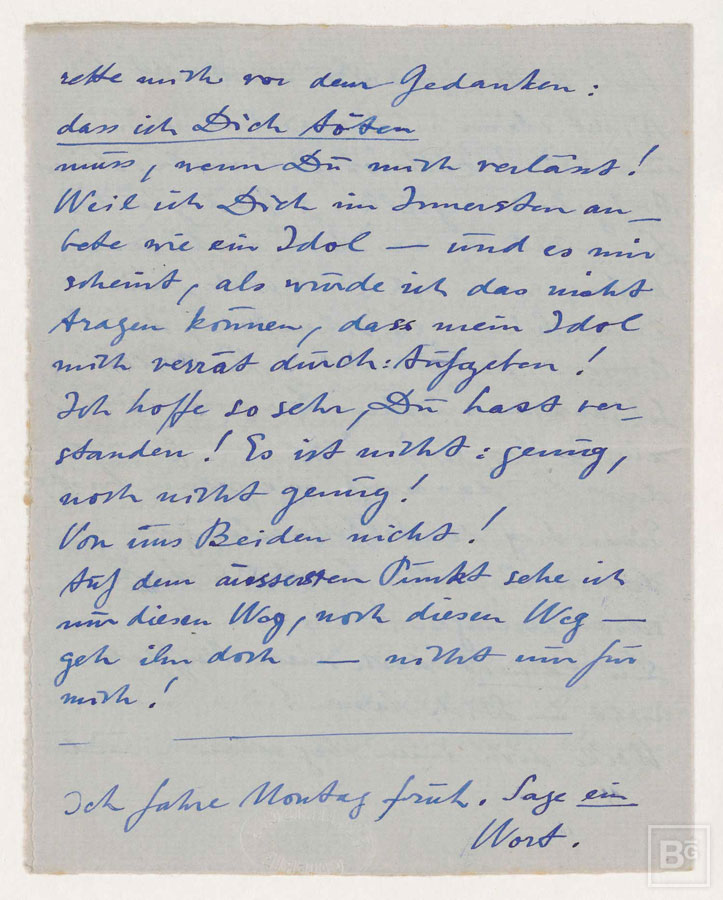 rette mich vor dem Gedanken:
dass ich Dich töten
muss, wenn Du mich verlässt!
Weil ich Dich im Innersten an_
bete wie ein Idol — und es mir
scheint, als würde ich das nicht
tragen können, dass mein Idol
mich verrät durch: Aufgeben!
Ich hoffe so sehr, Du hast ver_
standen! Es ist nicht: genug,
noch nicht genug!
Von uns Beiden nicht!
Auf dem äussersten Punkt sehe ich
nur diesen Weg, noch diesen Weg —
geh ihn doch — nicht nur für
mich!
Ich fahre Montag früh. Sage ein
Wort.
BG